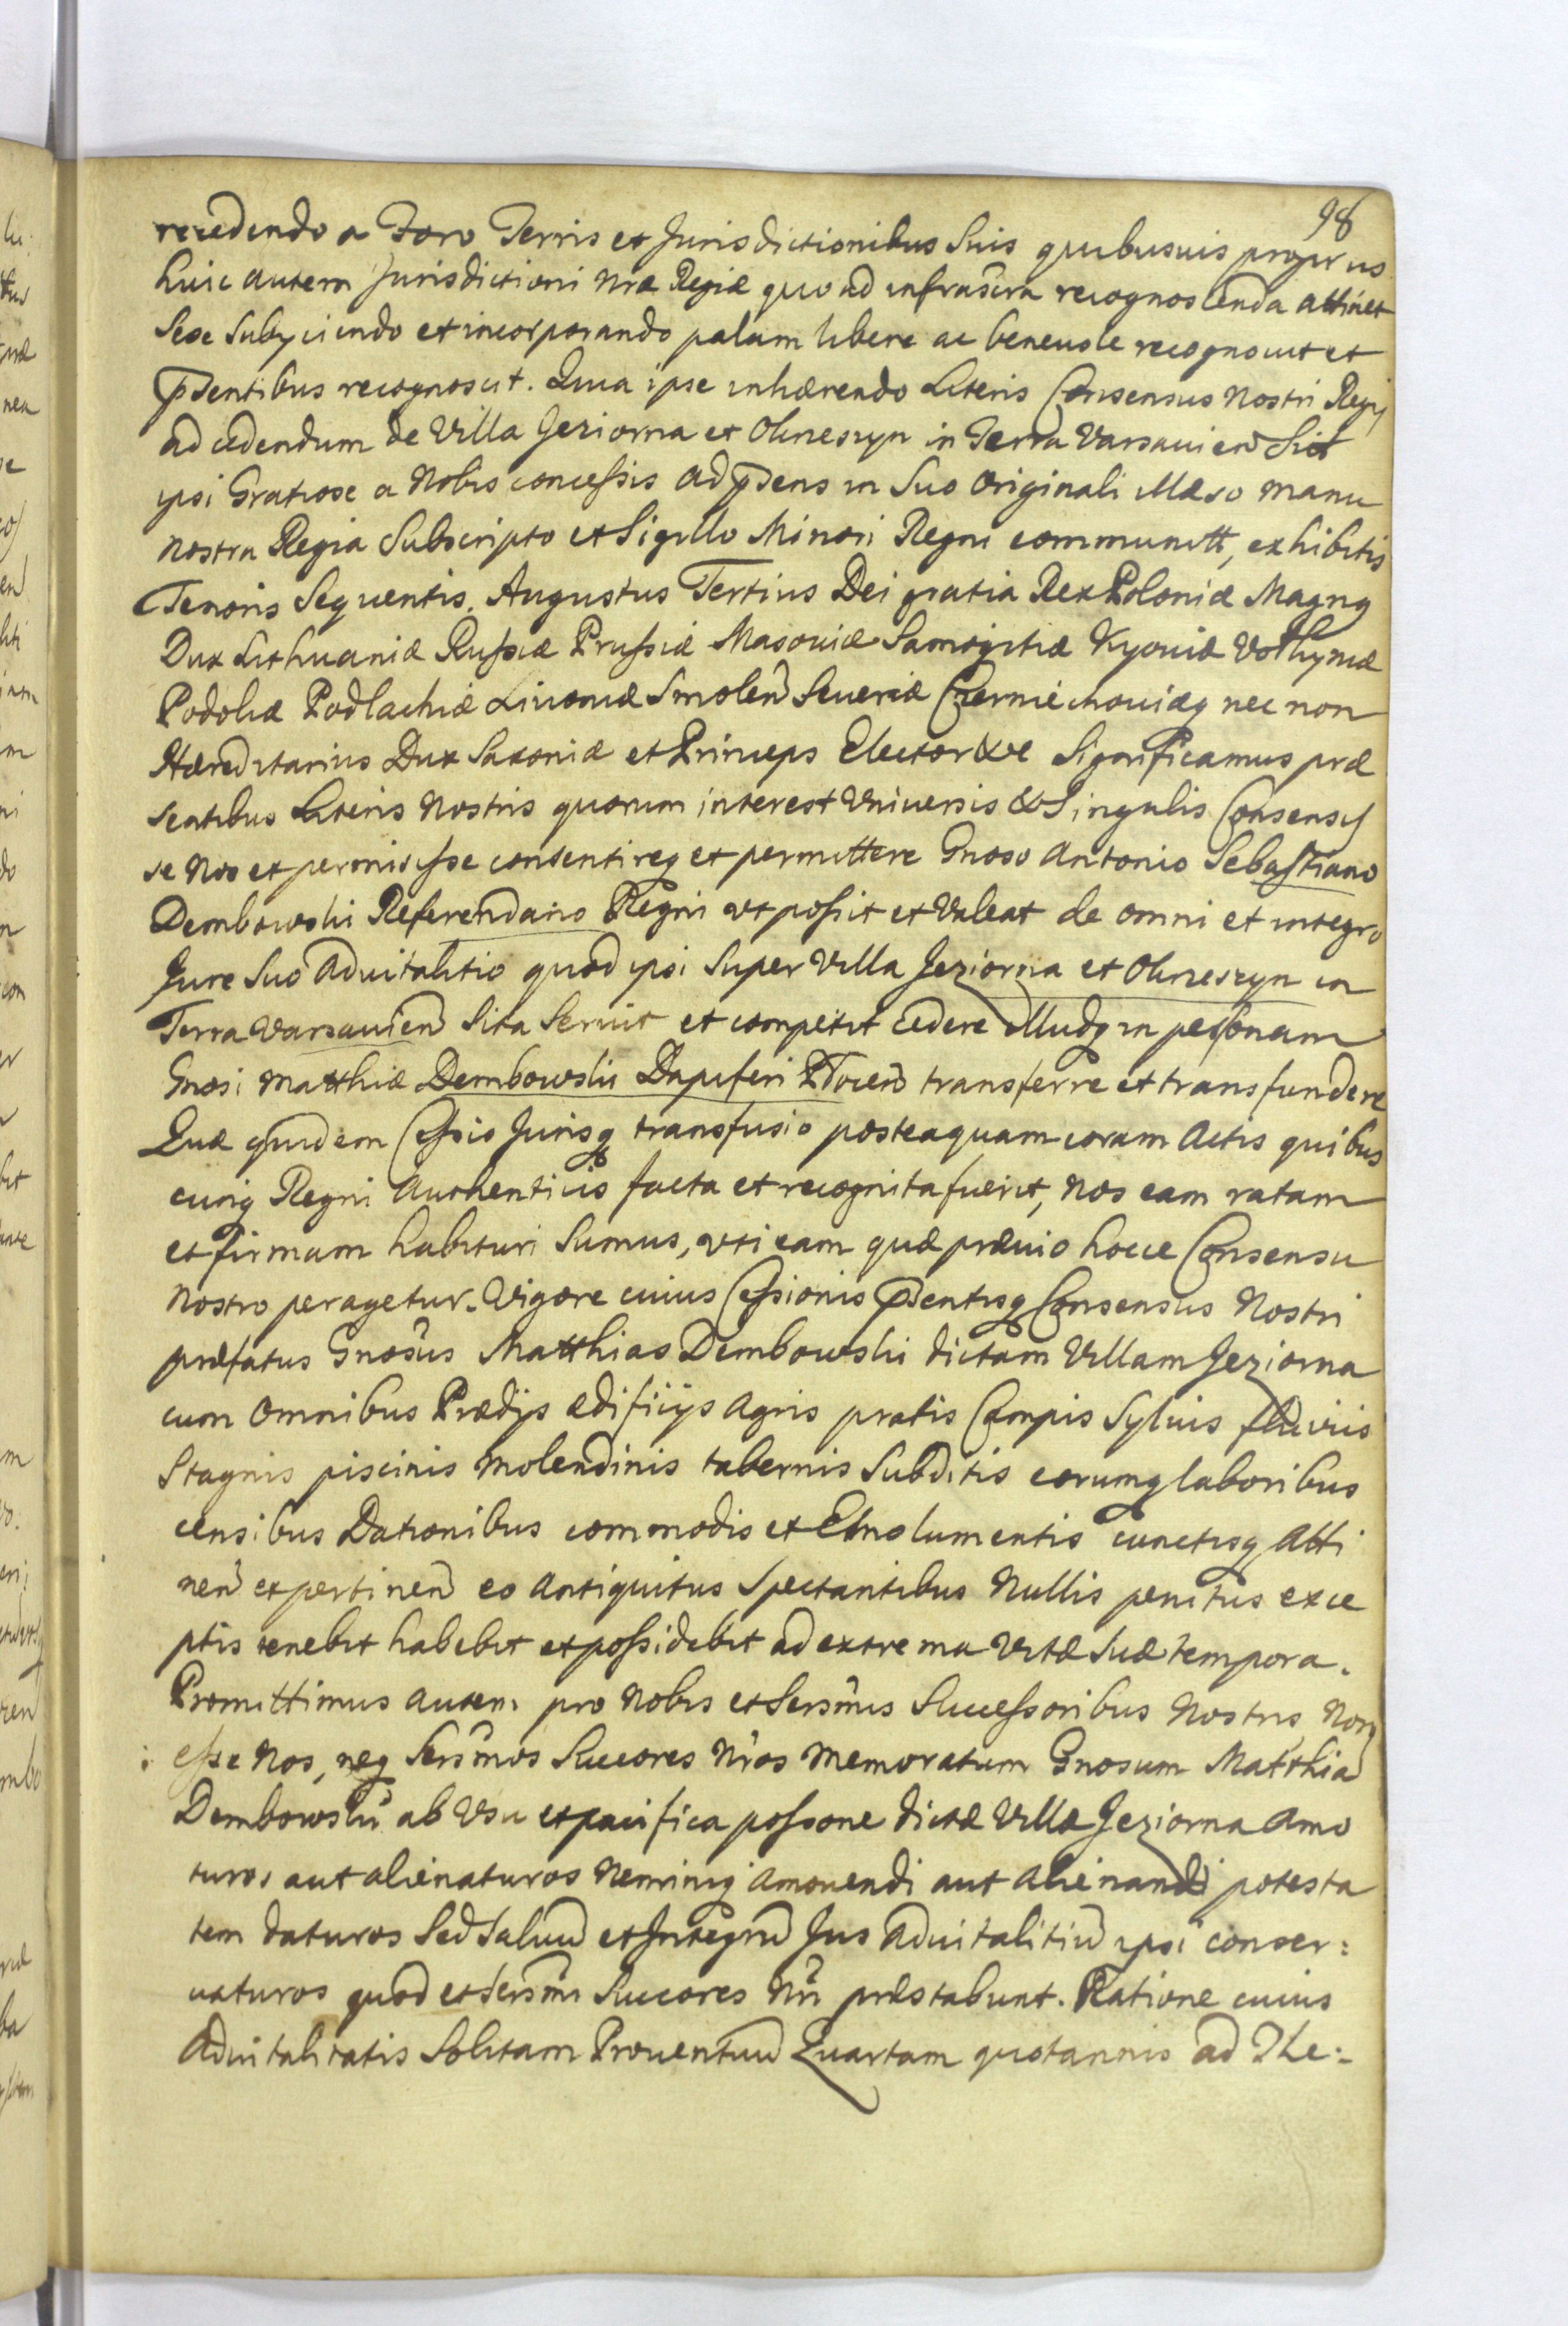 98
recedendo a Foro Terris et Jurisdictionibus Suis quibusuis proprijs
huic autem Jurisdictioni nrae Regiae quo ad infrascra recognoscenda attinet
Sese Subijciendo et incorporando palam libere ac beneuole recognouit et
pñtibus recognoscit. Quia ipse inhaerendo Literis Consensus Nostri Regij
ad cedendum de Villa Jeziorna et Obreszyn in Terra Varsauien Sit
ipsi Gratiose a Nobis concessis ad praesens in Suo Originali illaeso manu
nostra Regia Subscripto et Sigillo Minori Regni communitt, exhibitis
Tenoris Sequentis. Augustus Tertius Dei gratia Rex Poloniae Magnq
Dux Lithuaniae Russiae Prussiae Masouiae Samogitiae Kyouiae Volhyniae
Podoliae Podlachiae Liuoniae Smolen Seueriae Czerniechouiaeq nec non
Haereditarius Dux Saxoniae et Princeps Elector &c Significamus prae
sentibus Literis Nostris quorum interest Vniuersis & Singulis Consensis
se Nos et permisisse consentireq et permittere Gnoso Antonio Sebastiano
Dembowski Referendario Regni vt possit et Valeat de omni et integro
Jure Suo Aduitalitio quod ipsi Super Villa Jeziorna et Obreszyn in
Terra Varsauien Sita Seruit et competit cedere illudq in personam
Gnosi Matthiae Dembowski Dapiferi Plocen transferre et transfundere
Quae quidem Cessio Jurisq transfusio posteaquam coram Actis quibus
cunq Regni Authenticis facta et recognita fuerit, Nos eam ratam
et firmam habituri Sumus, vti eam quae praeuio hocce Consensu
Nostro peragetur. Vigore cuius Cessionis pñtisq Consensus Nostri
praefatus Gnosus Matthias Dembowski dictam Villam Jeziorna
cum Omnibus Praedijs aedificijs Agris pratis Campis Syluis fluuiis
Stagnis piscinis Molendinis tabernis Subditis eorumq laboribus
censibus Dationibus commodis et Emolumentis cunctisq Atti
nen et pertinen eo Antiquitus Spectantibus Nullis penitus exce
ptis tenebit habebit et possidebit ad extrema Vitae Suae tempora.
Promittimus autem pro Nobis et Sersmis Successoribus Nostris Non
esse Nos, neq Sersmos Succores Nros Memoratum Gnosum Matthia
Dembowski ab Vsu et pacifica possone dictae Villae Jeziorna Amo
turos aut alienaturos Neminiq Amouendi aut Alienandi potesta
tem daturos Sed Saluu et Integru Jus Aduitalitiu ipsi conser:
uaturos quod et Sersmi Succores Nri praestabunt. Ratione cuius
Aduitalitatis Solitam Prouentuu Quartam quotannis ad The: